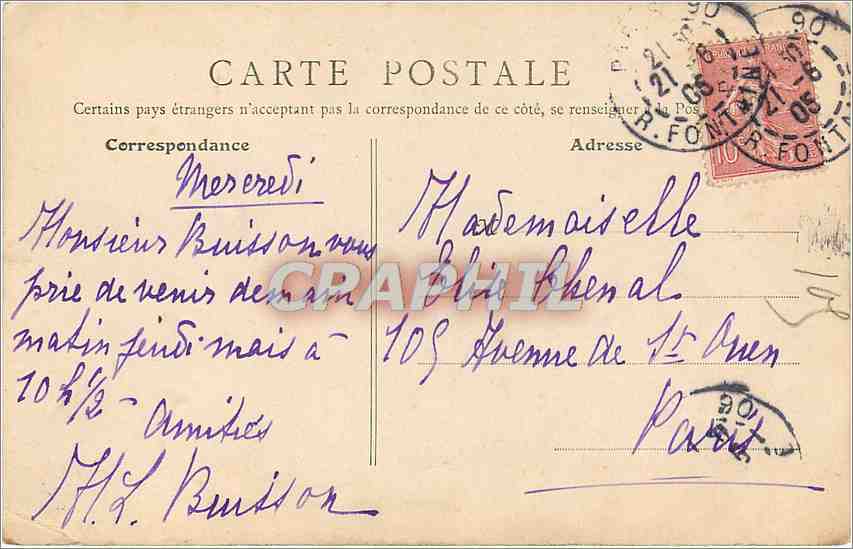 CARTE POSTALE
Certains pays étrangers n'acceptant pas la correspondance de ce côté, se renseigner à la Pos
Correspondance
Mercredi
Monsieur Buisson vous
prie de venir demain
matin jeudi mais à
10 h 1/2 -
Amitiés
M. L. Buisson
Adresse
Mademoiselle
Elise Chenal
109 Avenue de St Ouen
Paris
CRAPHIL
90
21 - 6
05
R. FONTAINE
90
21 - 6
05
R. FONTA
10